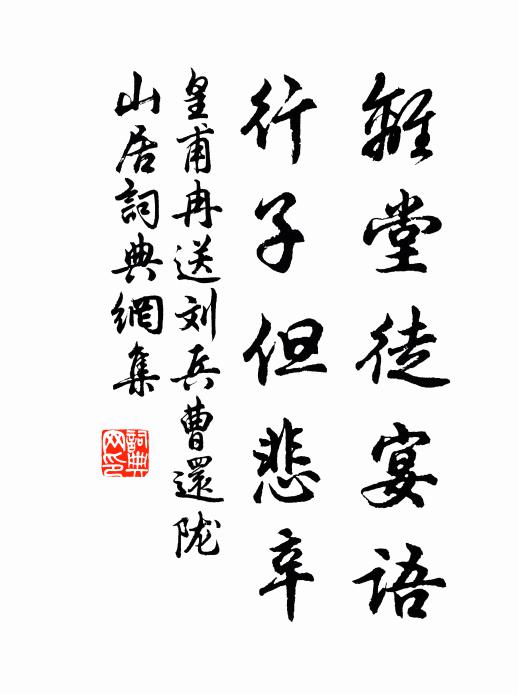 離堂徒宴語
行子但悲辛
皇甫冉送刘兵曹還陇
山居詞典網集
詞典
网印